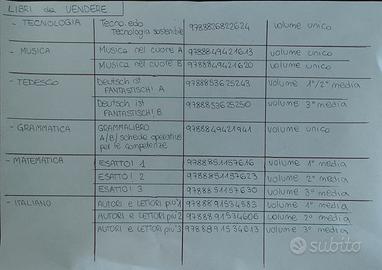 LIBRI da VENDERE
- TECNOLOGIA Tecno.edo Tecnologia sostenibile 9788826822624 volume unico
- MUSICA Musica nel cuore A 9788849421613 volume unico
Musica nel cuore B 9788849421620 volume unico
- TEDESCO Deutsch ist FANTASTISCH! A 9788853625243 volume 1°/2° media
Deutsch ist FANTASTISCH! B 9788853625250 volume 3° media
- GRAMMATICA GRAMMALIBRO A/B/schede operative per le competenze 9788849421941 volume unico
- MATEMATICA ESATTO! 1 9788851157616 volume 1° media
ESATTO! 2 9788851157623 volume 2° media
ESATTO! 3 9788851157630 volume 3° media
- ITALIANO AUTORI E LETTORI più 1 9788891534583 volume 1° media
AUTORI E LETTORI più 2 9788891534606 volume 2° media
AUTORI E LETTORI più 3 9788891534613 volume 3° media
subito